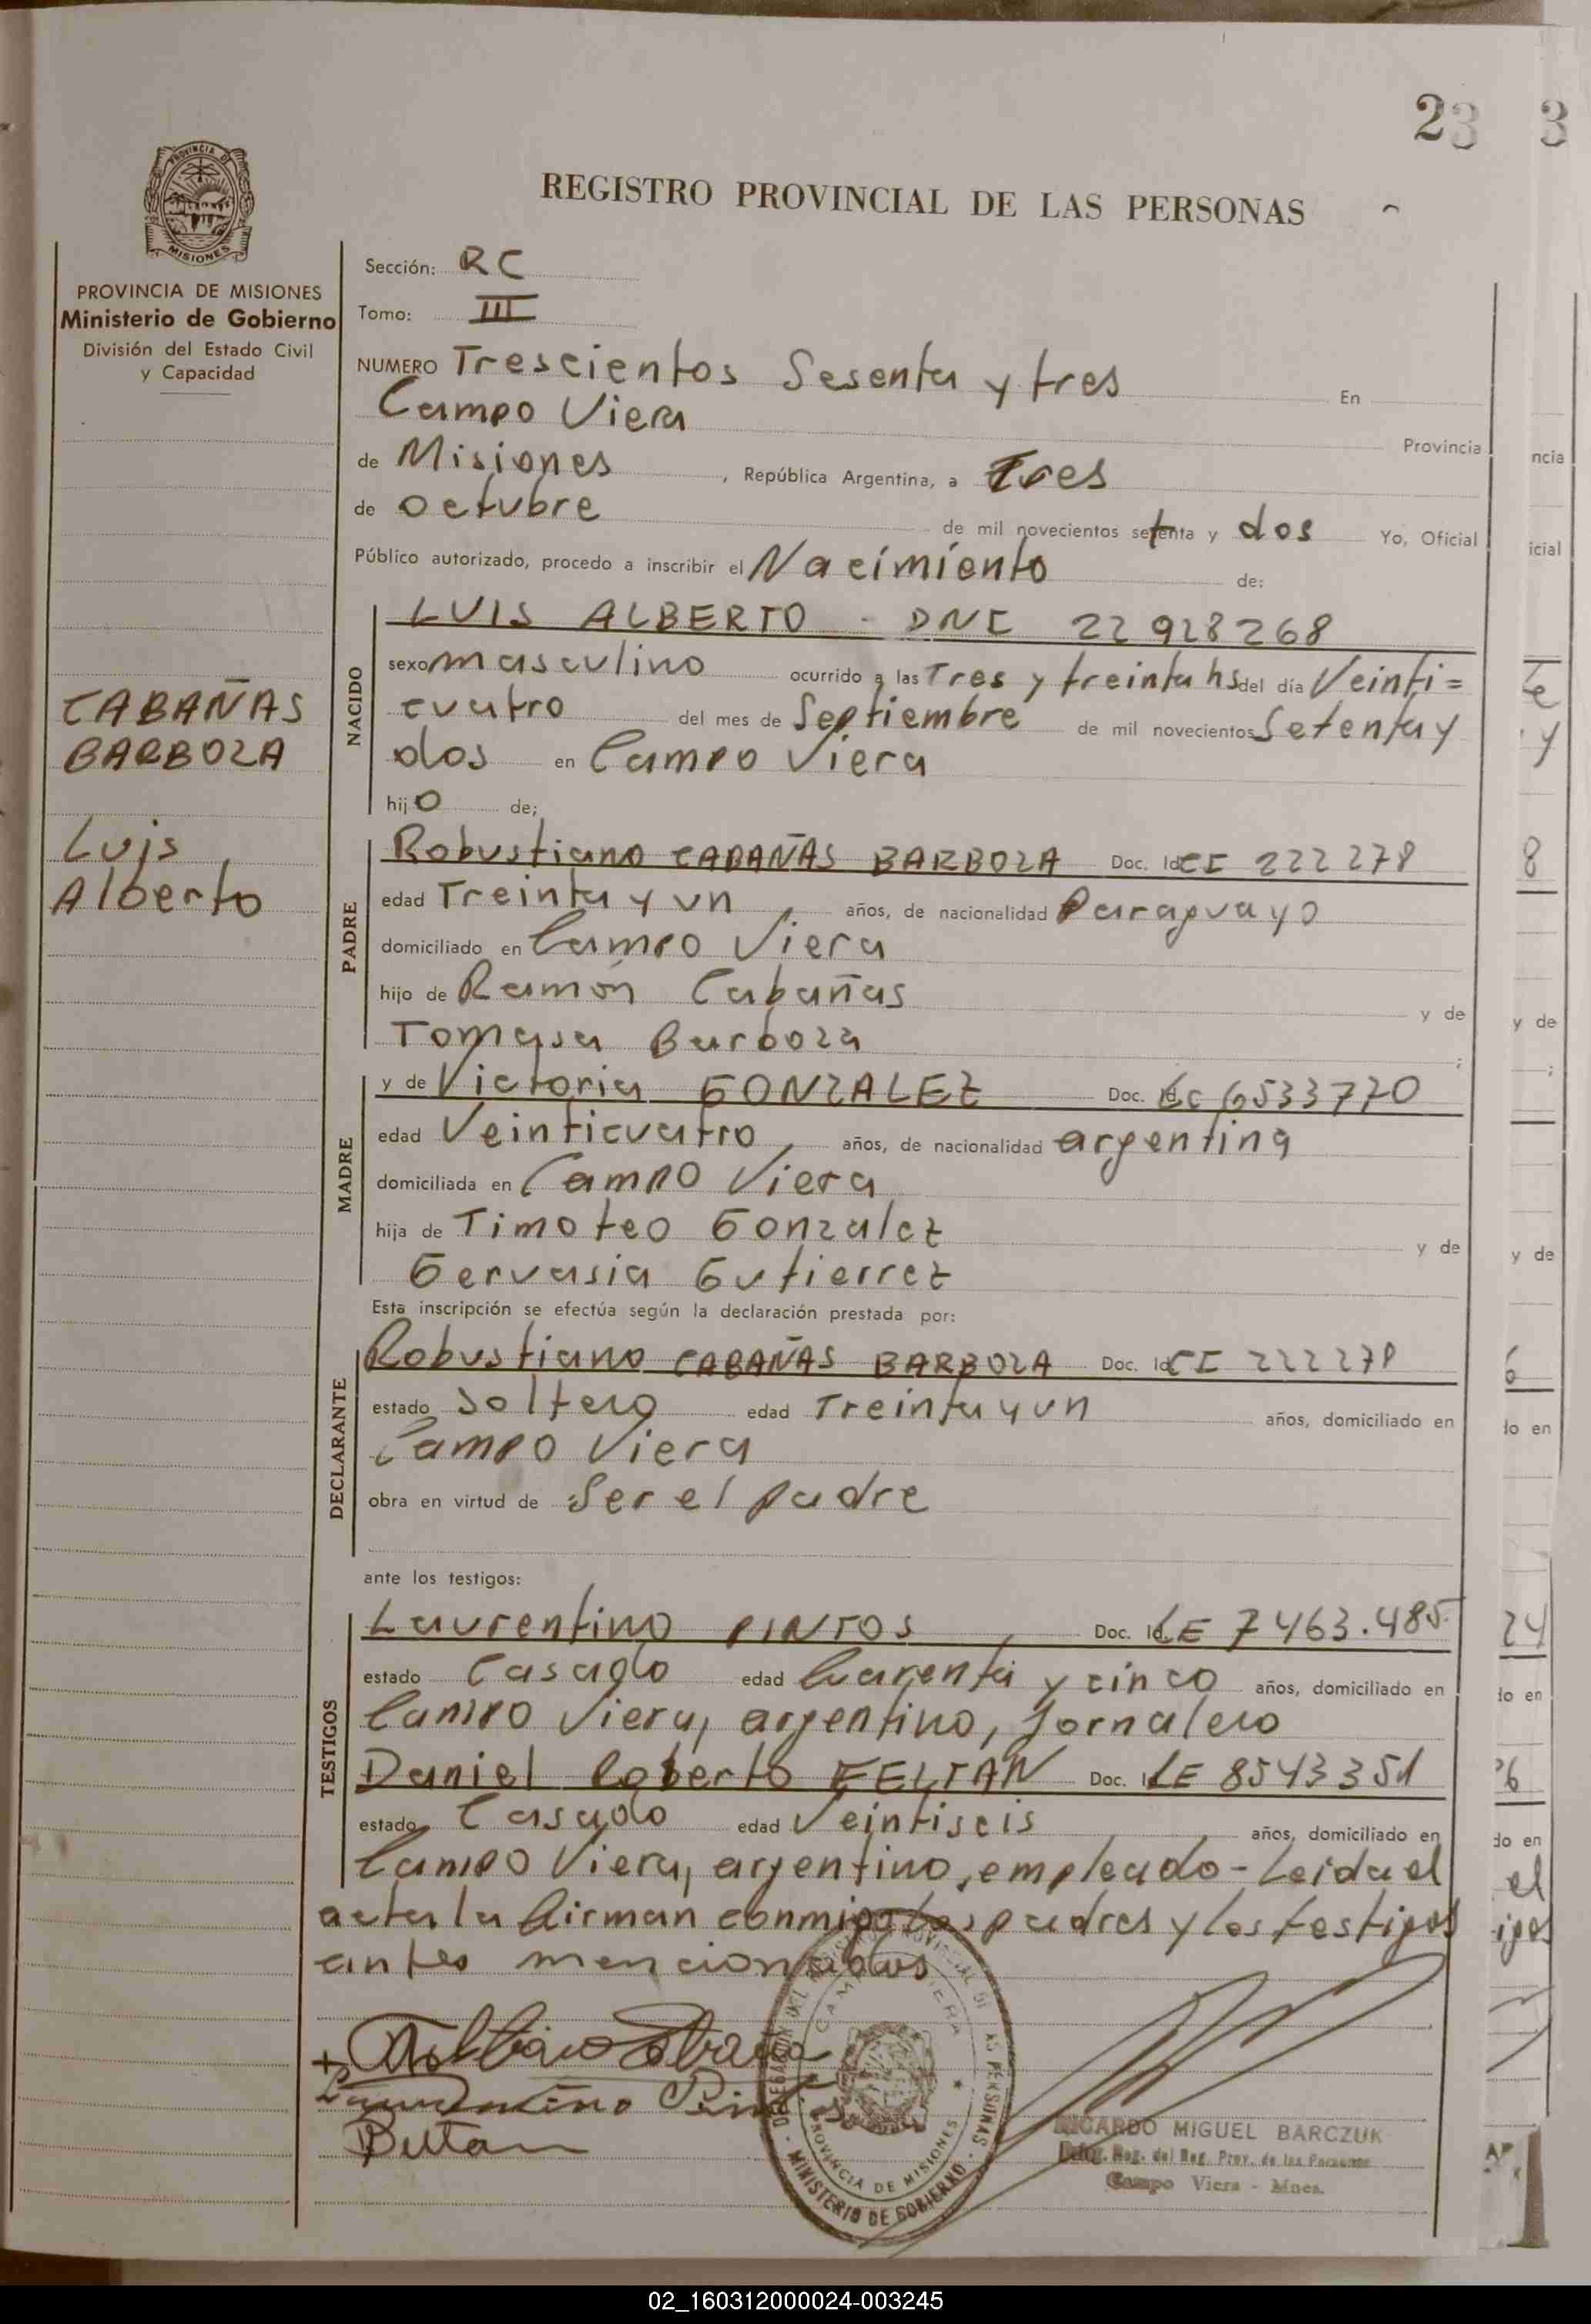 23 3
REGISTRO PROVINCIAL DE LAS PERSONAS
PROVINCIA DE MISIONES
PROVINCIA DE MISIONES
Ministerio de Gobierno
División del Estado Civil
y Capacidad
CABAÑAS
BARBOZA
Luis
Alberto
Sección: RC
Tomo: III
NUMERO Trescientos Sesenta y tres En
Campo Viera Provincia
de Misiones, República Argentina, a tres
de octubre de mil novecientos setenta y dos Yo, Oficial
Público autorizado, procedo a inscribir el Nacimiento de:
NACIDO
LUIS ALBERTO - DNI 22928268
sexo masculino ocurrido a las Tres y treinta hs del día Veinti=
cuatro del mes de Septiembre de mil novecientos Setenta y
dos en Campo Viera
hijo de;
PADRE
Robustiano CABAÑAS BARBOZA Doc. Id CI 222278
edad Treinta y un años, de nacionalidad Paraguayo
domiciliado en Campo Viera
hijo de Ramón Cabañas y de
Tomasa Barboza ;
MADRE
y de Victoria GONZALEZ Doc. Id. LC 6533770
edad Veinticuatro, años, de nacionalidad argentina
domiciliada en Campo Viera
hija de Timoteo Gonzalez y de
Gervasia Gutierrez
Esta inscripción se efectúa según la declaración prestada por:
DECLARANTE
Robustiano CABAÑAS BARBOZA Doc. Id CI 222278
estado Soltero edad Treinta y un años, domiciliado en
Campo Viera
obra en virtud de Ser el padre
ante los testigos:
TESTIGOS
Laurentino PINTOS, Doc. Id. LE 7463.485
estado Casado edad Cuarenta y cinco años, domiciliado en
Campo Viera, argentino, Jornalero
Daniel Roberto BELTAN Doc. I LE 8543351
estado Casado edad Veintiseis años, domiciliado en
Campo Viera, argentino, empleado - Leida el
acta la firman conmigo los padres y los testigos
antes mencionados
DELEGACION DEL REGISTRO PROVINCIAL DE LAS PERSONAS
CAMPO VIERA
PROVINCIA DE MISIONES
MINISTERIO DE GOBIERNO
RICARDO MIGUEL BARCZUK
Reg. del Reg. Prov. de las Personas
Campo Viera - Mnes.
ncia
icial
y
8
y de
;
y de
do en
24
do en
do en
el
02_160312000024-003245